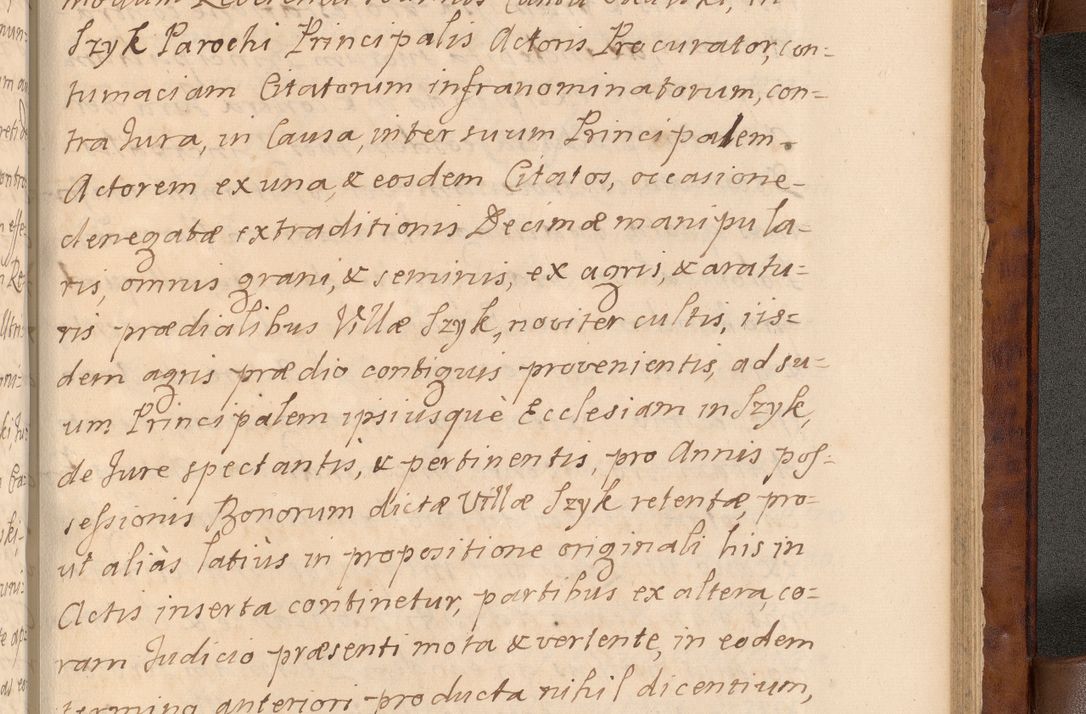 Szyk Parochi Principalis Actoris Procurator, con=
tumaciam Citatorum infranominatorum, con=
tra Jura, in Causa, inter suum Principalem
Actorem ex una, & eosdem Citatos, occasione
denegatæ extraditionis Decimæ manipula=
ris, omnis grani, & seminis, ex agris, & aratu=
ris prædialibus Villæ Szyk, noviter cultis, iis=
dem agris prædio contiguis provenientis, ad su=
um Principalem ipsiusquè Ecclesiam in Szyk,
de Jure spectantis, & pertinentis, pro Annis pos=
sessionis Bonorum dictæ Villæ Szyk retentæ, pro=
ut aliàs latiùs in propositione originali his in
Actis inserta continetur, partibus ex altera, co=
ram Judicio præsenti mota & vertente, in eodem
termino anteriori producta nihil dicentium,